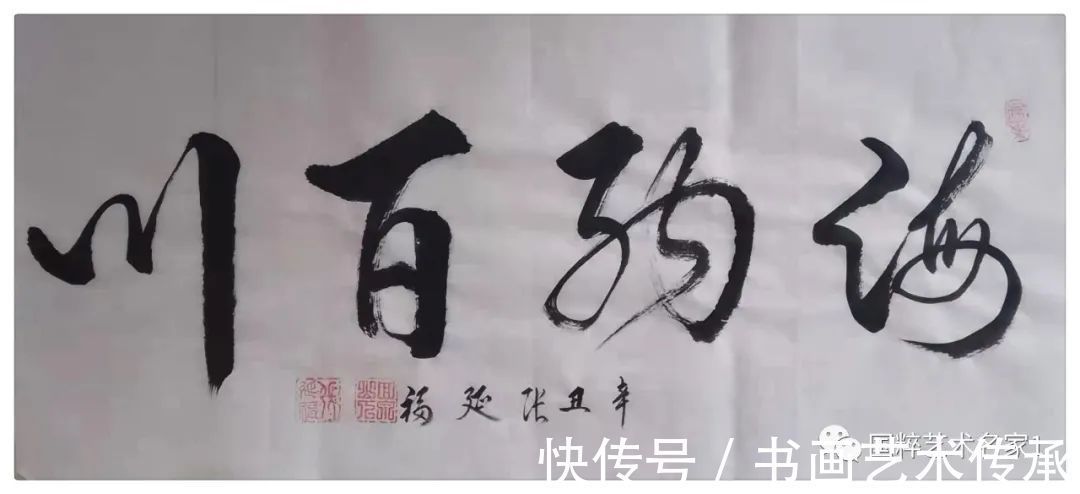 海纳百川
辛丑张延福
国粹艺术名家1
快传号 / 书画艺术传承